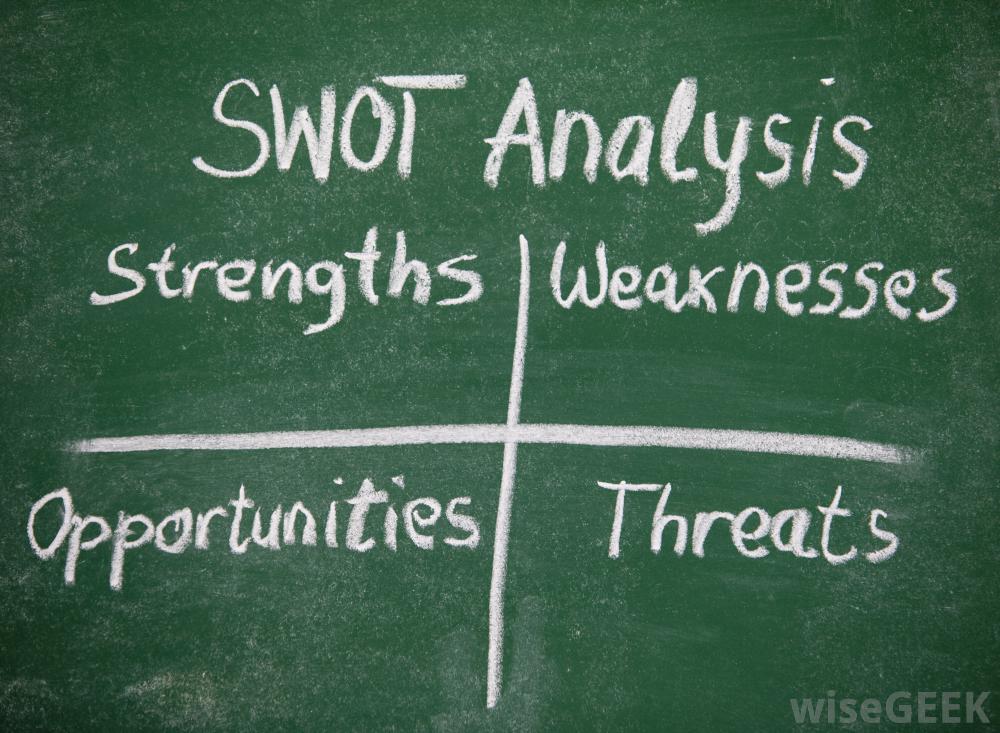 SWOT Analysis
Strengths Weaknesses
Opportunities Threats
wiseGEEK